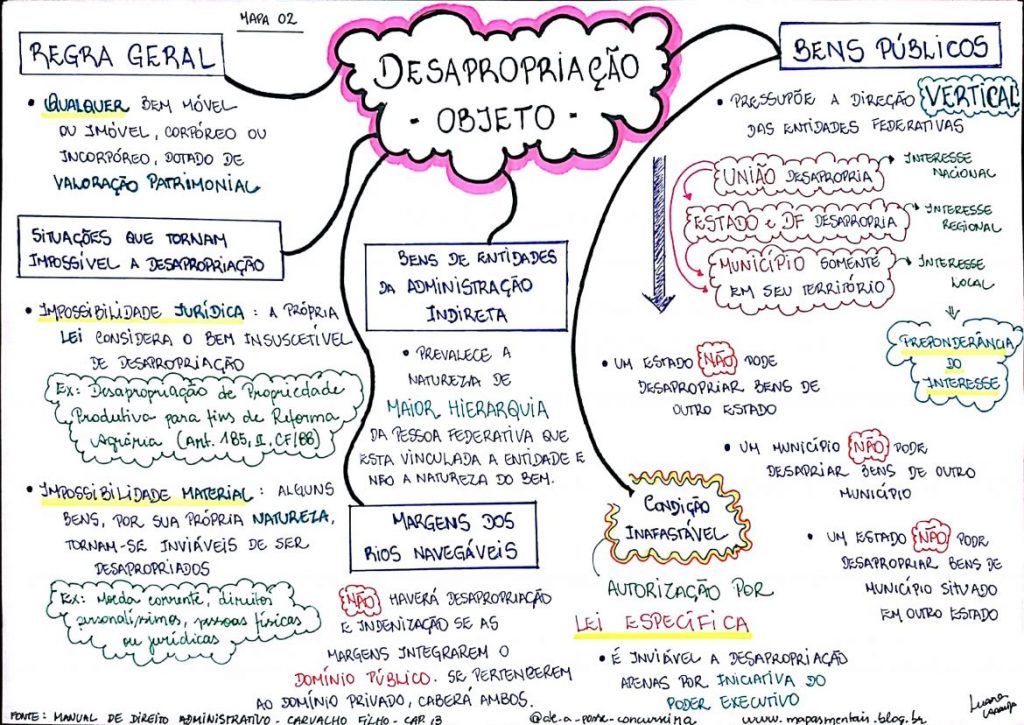 MAPA 02
DESAPROPRIAÇÃO
- OBJETO -
REGRA GERAL
• QUALQUER BEM MÓVEL
OU IMÓVEL, CORPÓREO OU
INCORPÓREO, DOTADO DE
VALORAÇÃO PATRIMONIAL
SITUAÇÕES QUE TORNAM
IMPOSSÍVEL A DESAPROPRIAÇÃO
• IMPOSSIBILIDADE JURÍDICA: A PRÓPRIA
LEI CONSIDERA O BEM INSUSCETÍVEL
DE DESAPROPRIAÇÃO
Ex: Desapropriação de Propriedade
Produtiva para fins de Reforma
Agrária (Art. 185, II, CF/88)
• IMPOSSIBILIDADE MATERIAL: ALGUNS
BENS, POR SUA PRÓPRIA NATUREZA,
TORNAM-SE INVIÁVEIS DE SER
DESAPROPRIADOS
Ex: Moeda corrente, direitos
personalíssimos, pessoas físicas
ou jurídicas
BENS DE ENTIDADES
DA ADMINISTRAÇÃO
INDIRETA
• PREVALECE A
NATUREZA DE
MAIOR HIERARQUIA
DA PESSOA FEDERATIVA QUE
ESTA VINCULADA A ENTIDADE E
NÃO A NATUREZA DO BEM.
MARGENS DOS
RIOS NAVEGÁVEIS
NÃO HAVERÁ DESAPROPRIAÇÃO
E INDENIZAÇÃO SE AS
MARGENS INTEGRAREM O
DOMÍNIO PÚBLICO. SE PERTENCEREM
AO DOMÍNIO PRIVADO, CABERÁ AMBOS.
BENS PÚBLICOS
• PRESSUPÕE A DIREÇÃO VERTICAL
DAS ENTIDADES FEDERATIVAS
UNIÃO DESAPROPRIA
INTERESSE
NACIONAL
ESTADO e DF DESAPROPRIA
INTERESSE
REGIONAL
MUNICÍPIO SOMENTE
EM SEU TERRITÓRIO
INTERESSE
LOCAL
PREPONDERÂNCIA
DO
INTERESSE
• UM ESTADO NÃO PODE
DESAPROPRIAR BENS DE
OUTRO ESTADO
• UM MUNICÍPIO NÃO PODE
DESAPRIAR BENS DE OUTRO
MUNICÍPIO
• UM ESTADO NÃO PODE
DESAPROPRIAR BENS DE
MUNICÍPIO SITUADO
EM OUTRO ESTADO
CONDIÇÃO
INAFASTÁVEL
AUTORIZAÇÃO POR
LEI ESPECÍFICA
• É INVIÁVEL A DESAPROPRIAÇÃO
APENAS POR INICIATIVA DO
PODER EXECUTIVO
FONTE: MANUAL DE DIREITO ADMINISTRATIVO - CARVALHO FILHO - CAP. 13
www.mapasmentais.blog.br
Luana